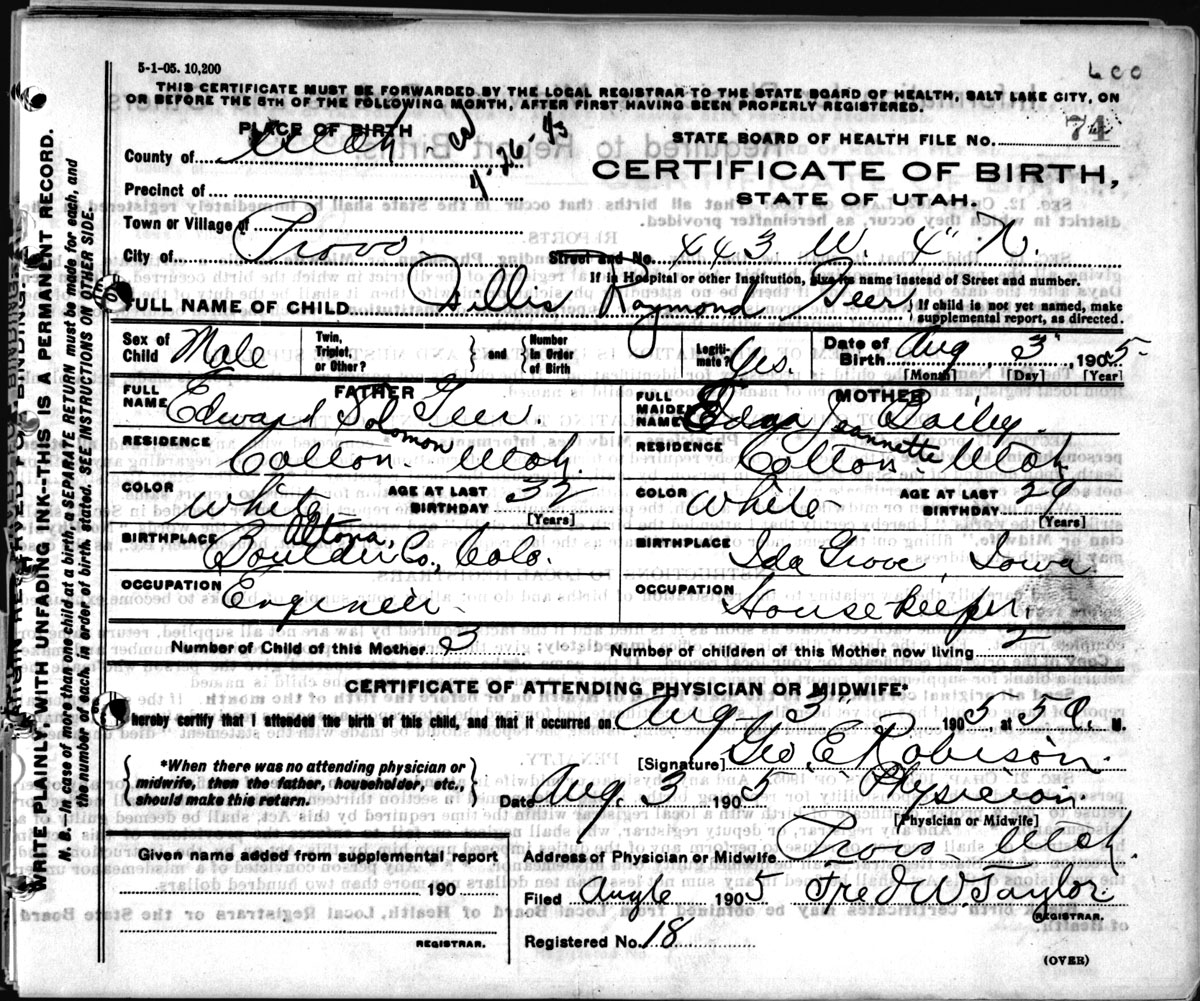 5-1-05. 10,200
600
THIS CERTIFICATE MUST BE FORWARDED BY THE LOCAL REGISTRAR TO THE STATE BOARD OF HEALTH, SALT LAKE CITY, ON
OR BEFORE THE 5TH OF THE FOLLOWING MONTH, AFTER FIRST HAVING BEEN PROPERLY REGISTERED.
PLACE OF BIRTH
STATE BOARD OF HEALTH FILE NO. 74
County of Utah
CERTIFICATE OF BIRTH,
STATE OF UTAH.
Precinct of
Town or Village of
City of Provo Street and No. 443 W. 4" N.
If in Hospital or other Institution, give its name instead of Street and number.
FULL NAME OF CHILD Willis Raymond Geer
If child is not yet named, make
supplemental report, as directed.
Sex of Child Male
Twin, Triplet, or Other? and Number In Order of Birth
Legitimate? Yes.
Date of Birth Aug 3" 1905
[Month] [Day] [Year]
FATHER
MOTHER
FULL NAME Edward Solomon Geer.
FULL MAIDEN NAME Edna Jeannette Bailey.
RESIDENCE Colton Utah.
RESIDENCE Colton Utah
COLOR White AGE AT LAST BIRTHDAY 32 [Years]
COLOR White AGE AT LAST BIRTHDAY 29 [Years]
BIRTHPLACE Altona, Boulder Co., Colo.
BIRTHPLACE Ida Grove, Iowa
OCCUPATION Engineer
OCCUPATION Housekeeper.
Number of Child of this Mother 3
Number of children of this Mother now living 2
CERTIFICATE OF ATTENDING PHYSICIAN OR MIDWIFE*
I hereby certify that I attended the birth of this child, and that it occurred on Aug 3" 1905, at 5 50 M.
[Signature] Geo E Robison.
*When there was no attending physician or
midwife, then the father, householder, etc.,
should make this return.
Date Aug. 3 1905 Physician.
[Physician or Midwife]
Given name added from supplemental report
190
REGISTRAR.
Address of Physician or Midwife Provo Utah.
Filed Aug 6 1905 Fred W. Taylor.
REGISTRAR.
Registered No. 18
(OVER)
WRITE PLAINLY WITH UNFADING INK--THIS IS A PERMANENT RECORD.
N. B.--In case of more than one child at a birth a SEPARATE RETURN must be made for each, and
the number of each, in order of birth, stated. SEE INSTRUCTIONS ON OTHER SIDE.